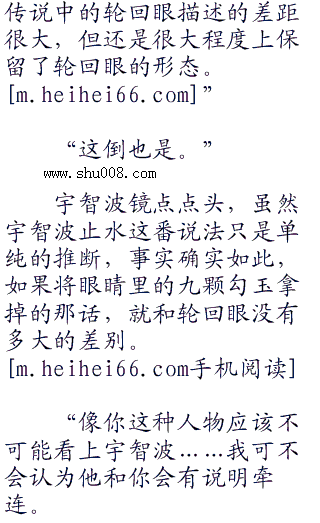 传说中的轮回眼描述的差距
很大，但还是很大程度上保
留了轮回眼的形态。
[m.heihei66.com]”
“这倒也是。”
www.shu008.com
宇智波镜点点头，虽然
宇智波止水这番说法只是单
纯的推断，事实确实如此，
如果将眼睛里的九颗勾玉拿
掉的那话，就和轮回眼没有
多大的差别。
[m.heihei66.com手机阅读]
“像你这种人物应该不
可能看上宇智波……我可不
会认为他和你会有说明牵
连。